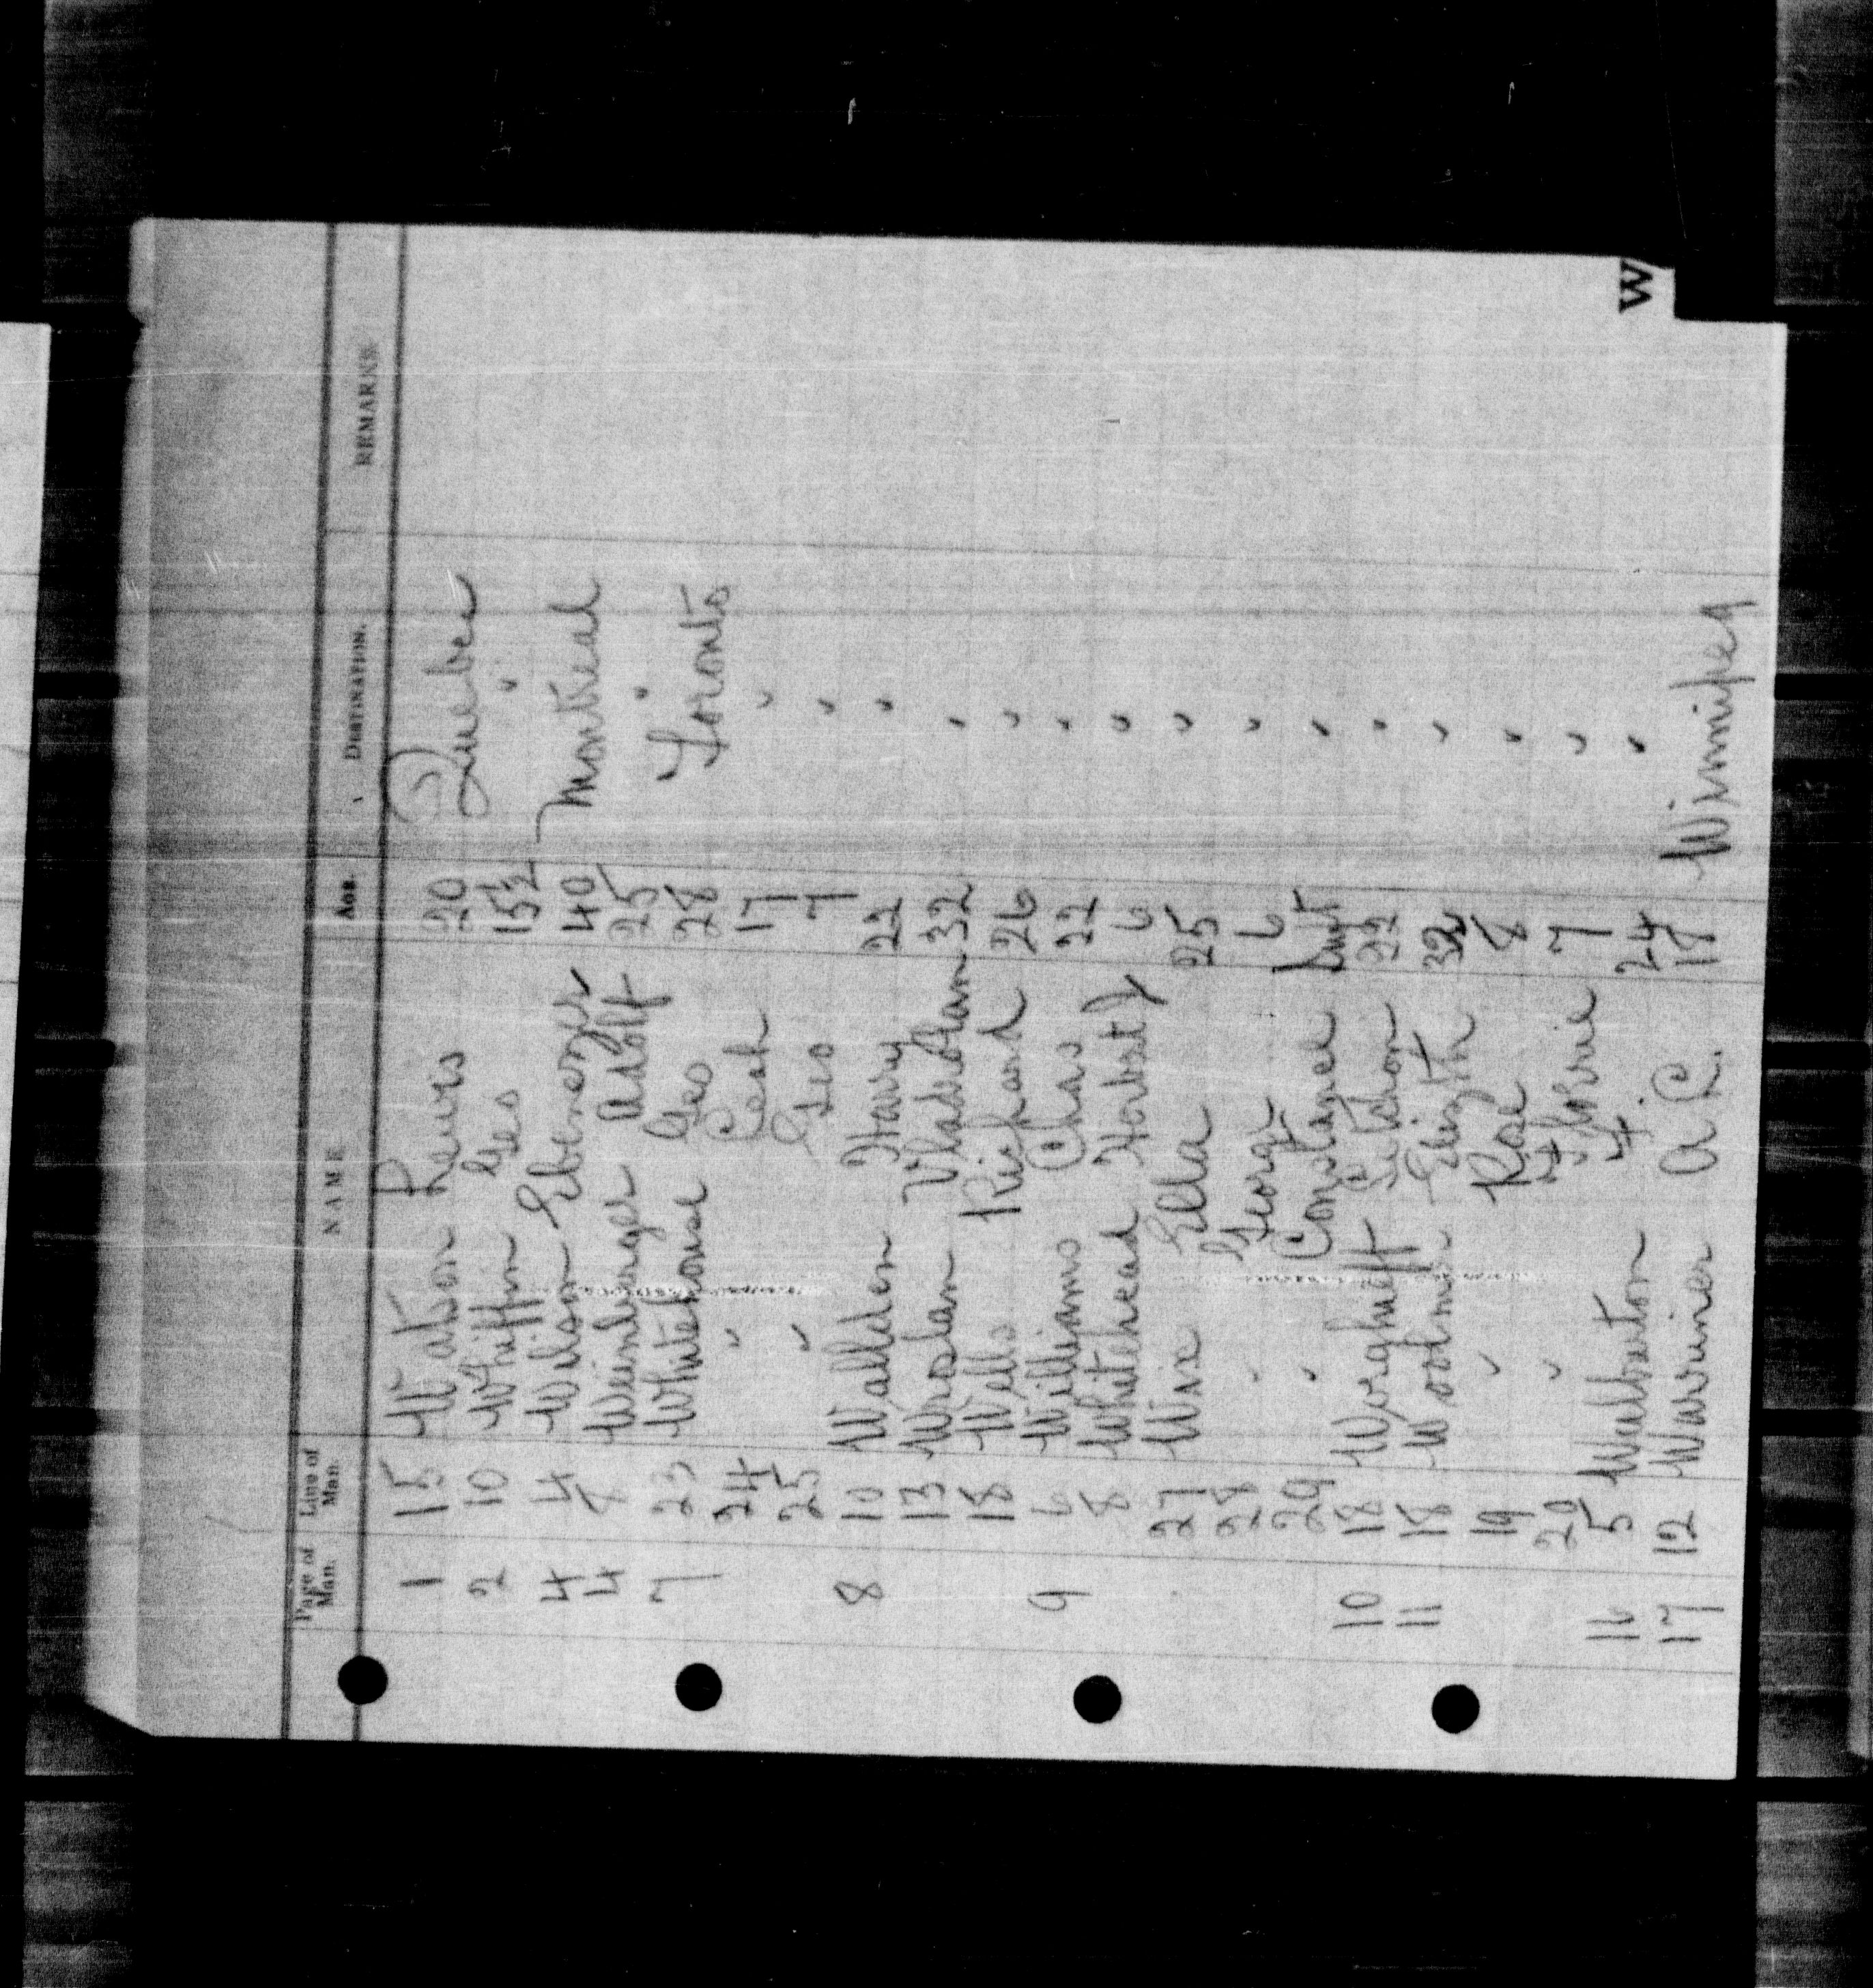 W
Page of Man. Line of Man. NAME Age. Destination. REMARKS.
1 15 Watson Lewis 20 Quebec
2 10 Whiffin Geo 15½ "
4 4 Wilson Ebenezer 40 Montreal
4 8 Weinberger Adolf 25 "
7 23 Whitehouse Geo 28 Toronto
24 " Leah 17 "
25 " Geo 7 "
8 10 Wallden Harry 22 "
13 Wroslan 32 "
18 Wells Richard 26 "
9 6 Williams Chas 22 "
8 Whitehead Herbert J 6 "
27 Wix Ella 25 "
28 " George 6 "
29 " Constance Inft "
10 18 22 "
11 18 Woolmer 32 "
19 " Rose 8 "
20 " 7 "
16 5 Warburton F. 24 "
17 12 Warriner A. C. 18 Winnipeg